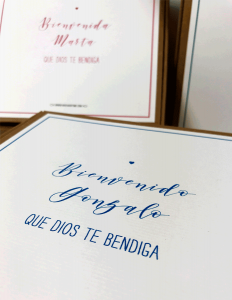 Bienvenida
Marta
QUE DIOS TE BENDIGA
Bienvenido
Gonzalo
QUE DIOS TE BENDIGA